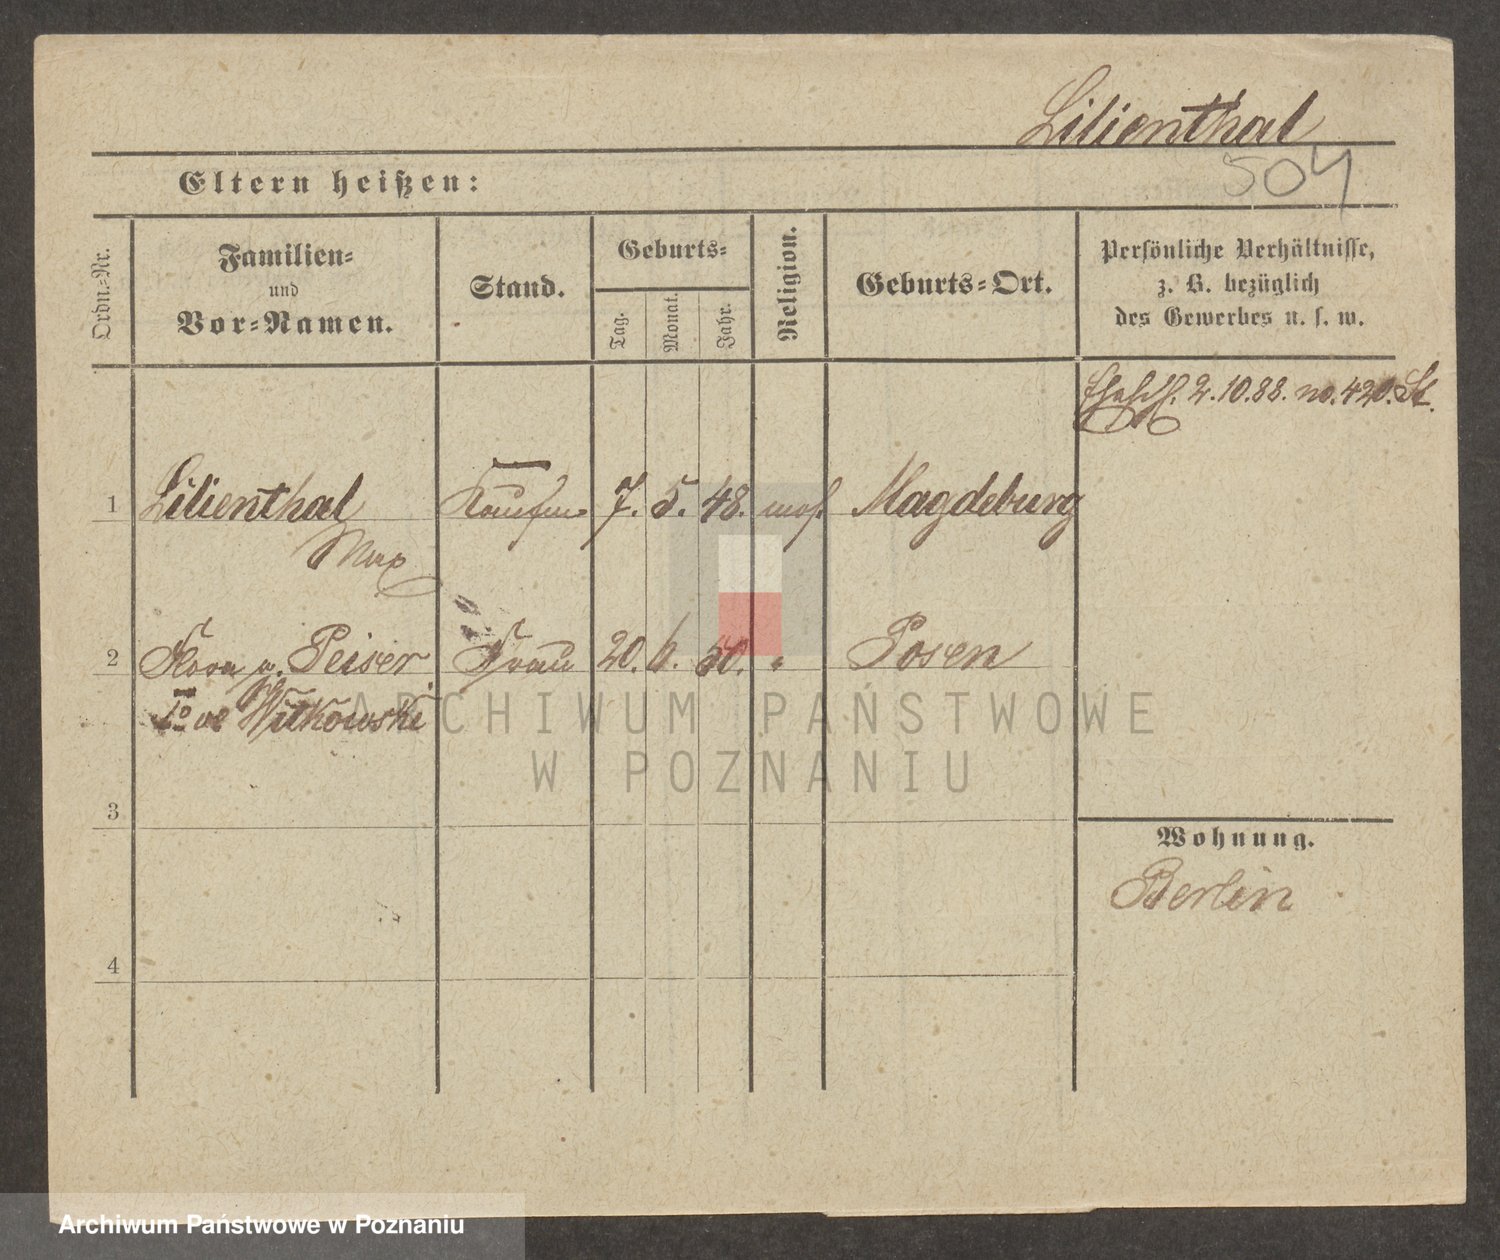 Lilienthal
504
Eltern heißen:
Ordn.-Nr.
Familien-
und
Vor-Namen.
Stand.
Geburts-
Tag.
Monat.
Jahr.
Religion.
Geburts-Ort.
Persönliche Verhältnisse,
z. B. bezüglich
des Gewerbes u. s. w.
Ehesch. 2.10.88. no. 420. St.
1 Lilienthal Kaufm 7. 5. 48. mos. Magdeburg
Max
2 Flora g. Peiser Frau 20. 6. 50. " Posen
Io v Witkowski
3
4
Wohnung.
Berlin
ARCHIWUM PAŃSTWOWE
W POZNANIU
Archiwum Państwowe w Poznaniu